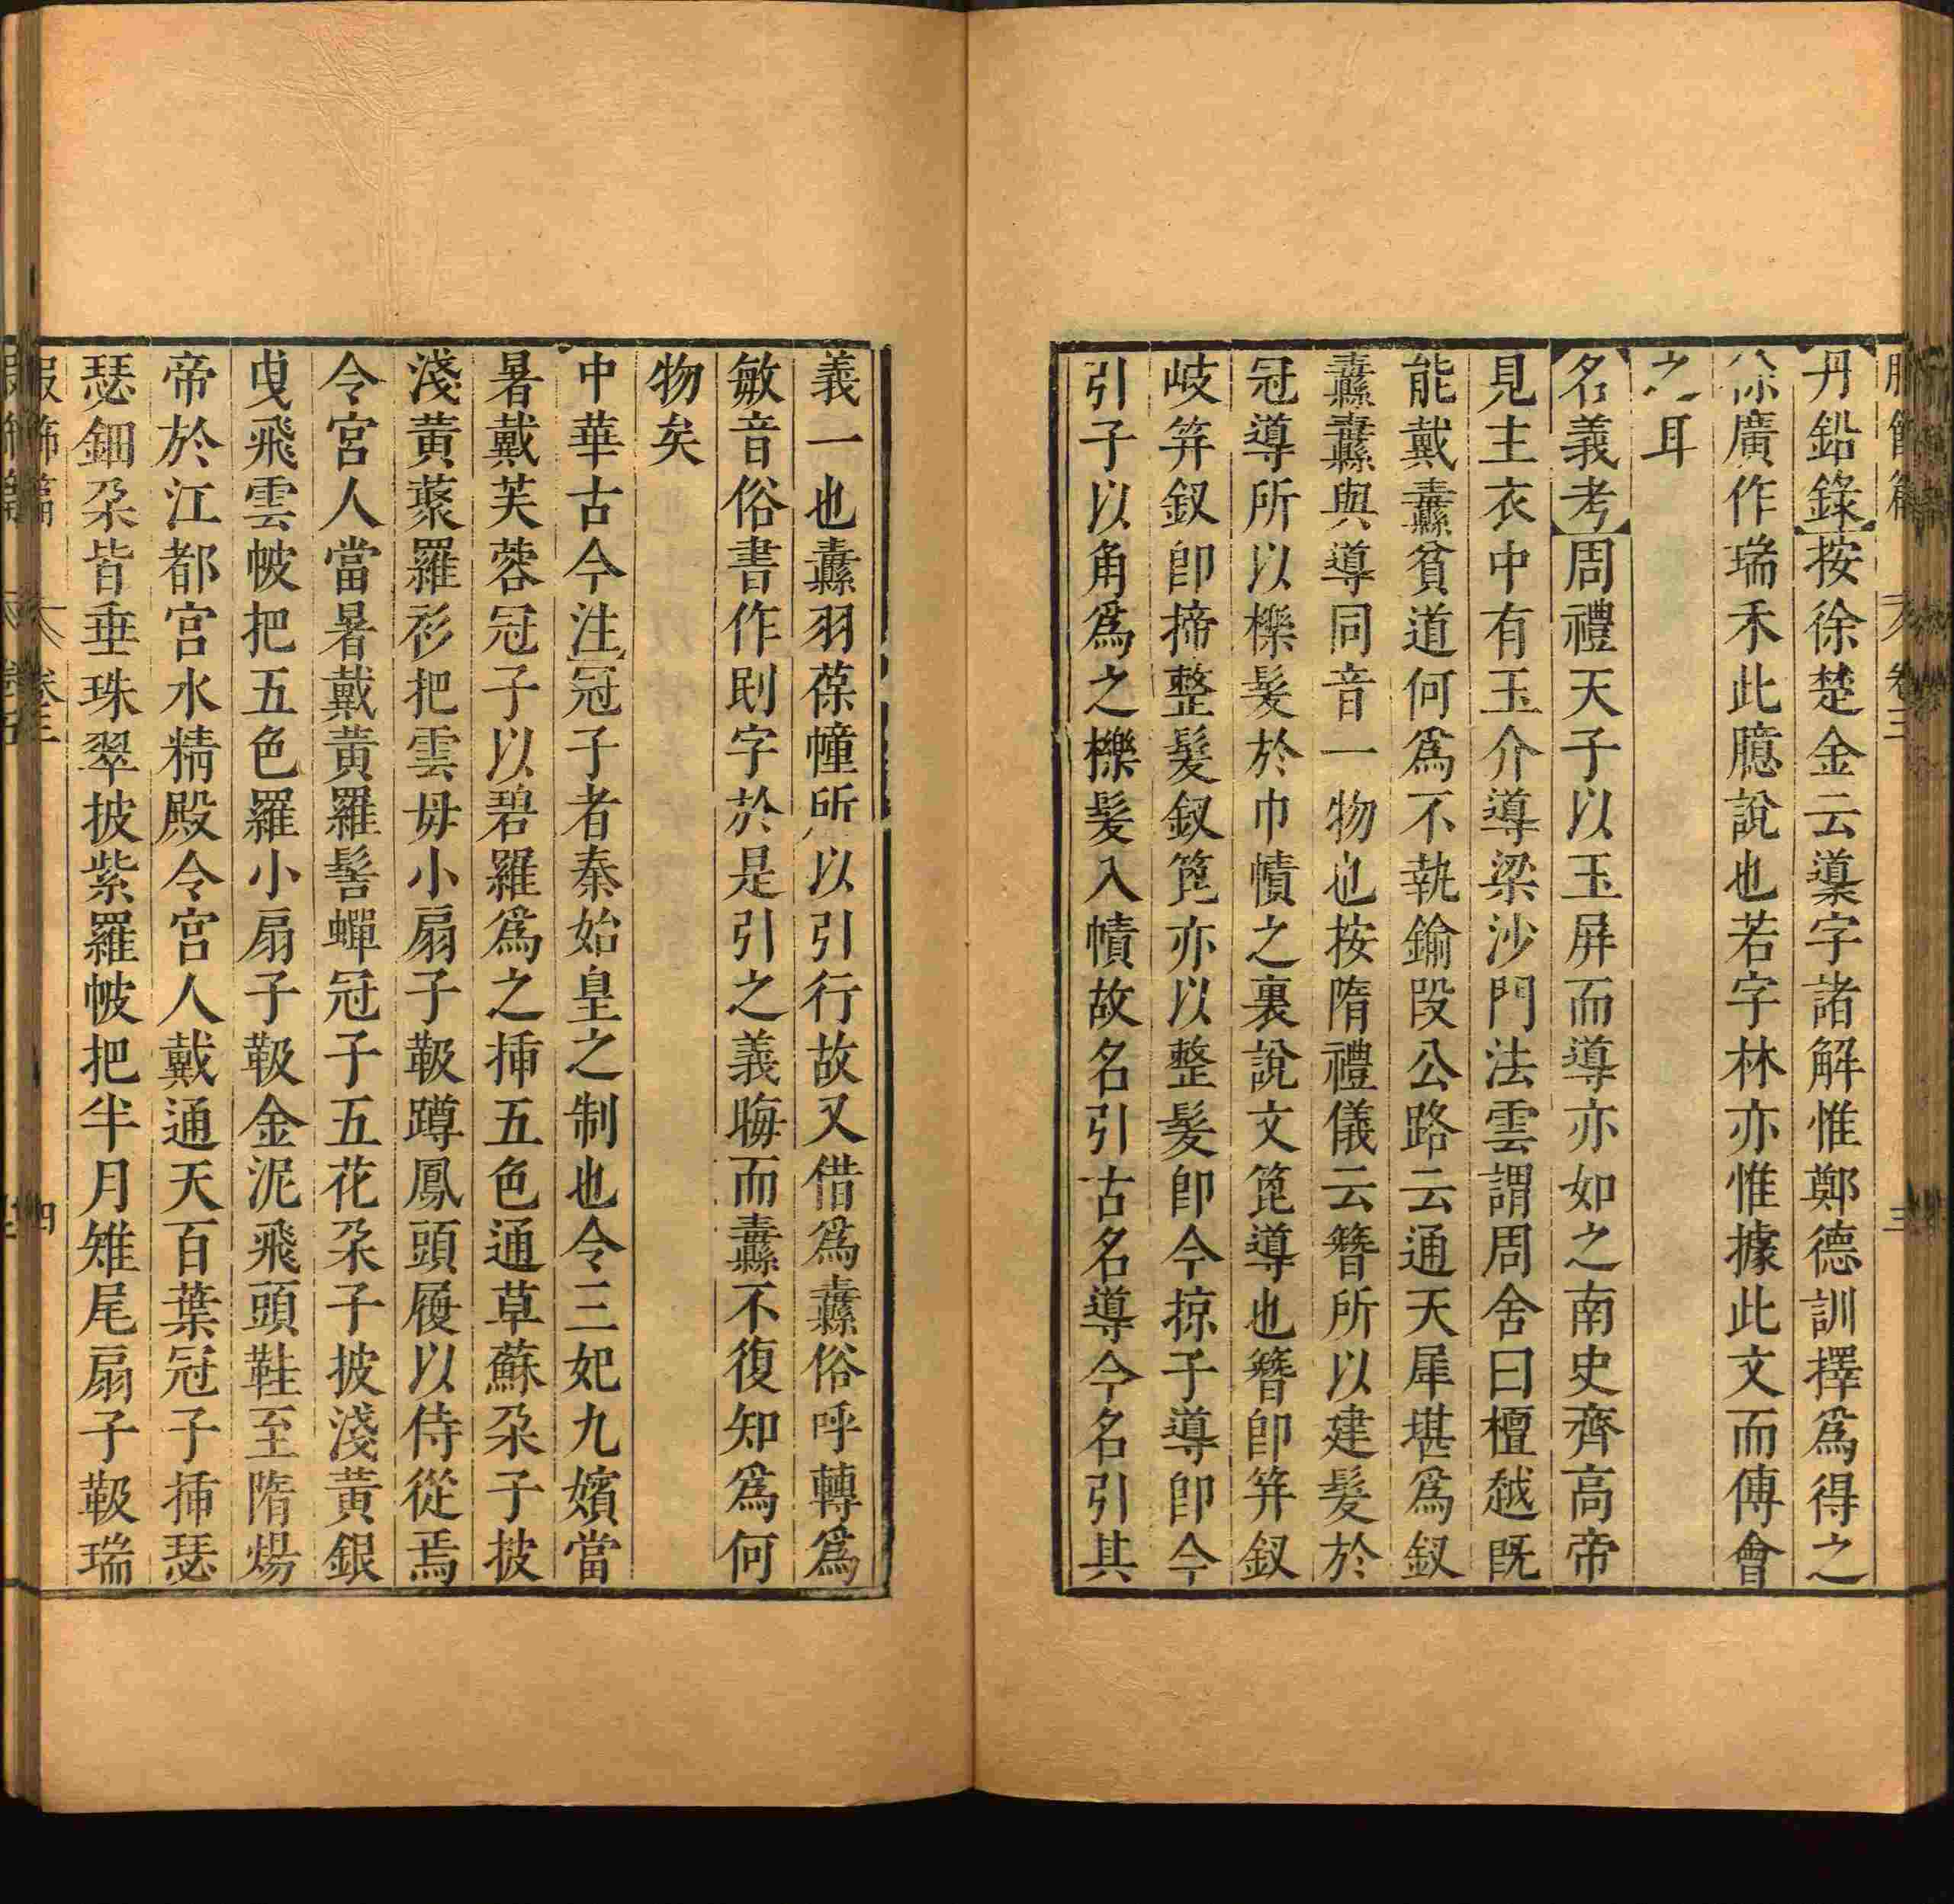 丹鉛錄按徐楚金云䆃字諸解惟鄭德訓擇爲得之
徐廣作瑞禾此臆說也若字林亦惟據此文而傅會
之耳
名義考周禮天子以玉屏而導亦如之南史齊高帝
見主衣中有玉介導梁沙門法雲謂周舍曰檀越旣
能戴纛貧道何爲不執鍮段公路云通天犀堪爲釵
纛纛與導同音一物也按隋禮儀云簪所以建髮於
冠導所以櫟髮於巾幘之裏說文箆導也簪卽笄釵
岐笄釵卽揥整髮釵箆亦以整髮卽今掠子導卽今
引子以角爲之櫟髮入幘故名引古名導今名引其
義一也纛羽葆幢所以引行故又借爲纛俗呼轉爲
敏音俗書作刡字於是引之義晦而纛不復知爲何
物矣
中華古今注冠子者秦始皇之制也令三妃九嬪當
暑戴芙蓉冠子以碧羅爲之揷五色通草蘇朶子披
淺黃藂羅衫把雲母小扇子靸蹲鳳頭履以侍從焉
令宮人當暑戴黃羅髻蟬冠子五花朶子披淺黃銀
曳飛雲帔把五色羅小扇子靸金泥飛頭鞋至隋煬
帝於江都宮水精殿令宮人戴通天百葉冠子揷瑟
瑟鈿朶皆垂珠翠披紫羅帔把半月雉尾扇子靸瑞
服飾篇 卷三 四